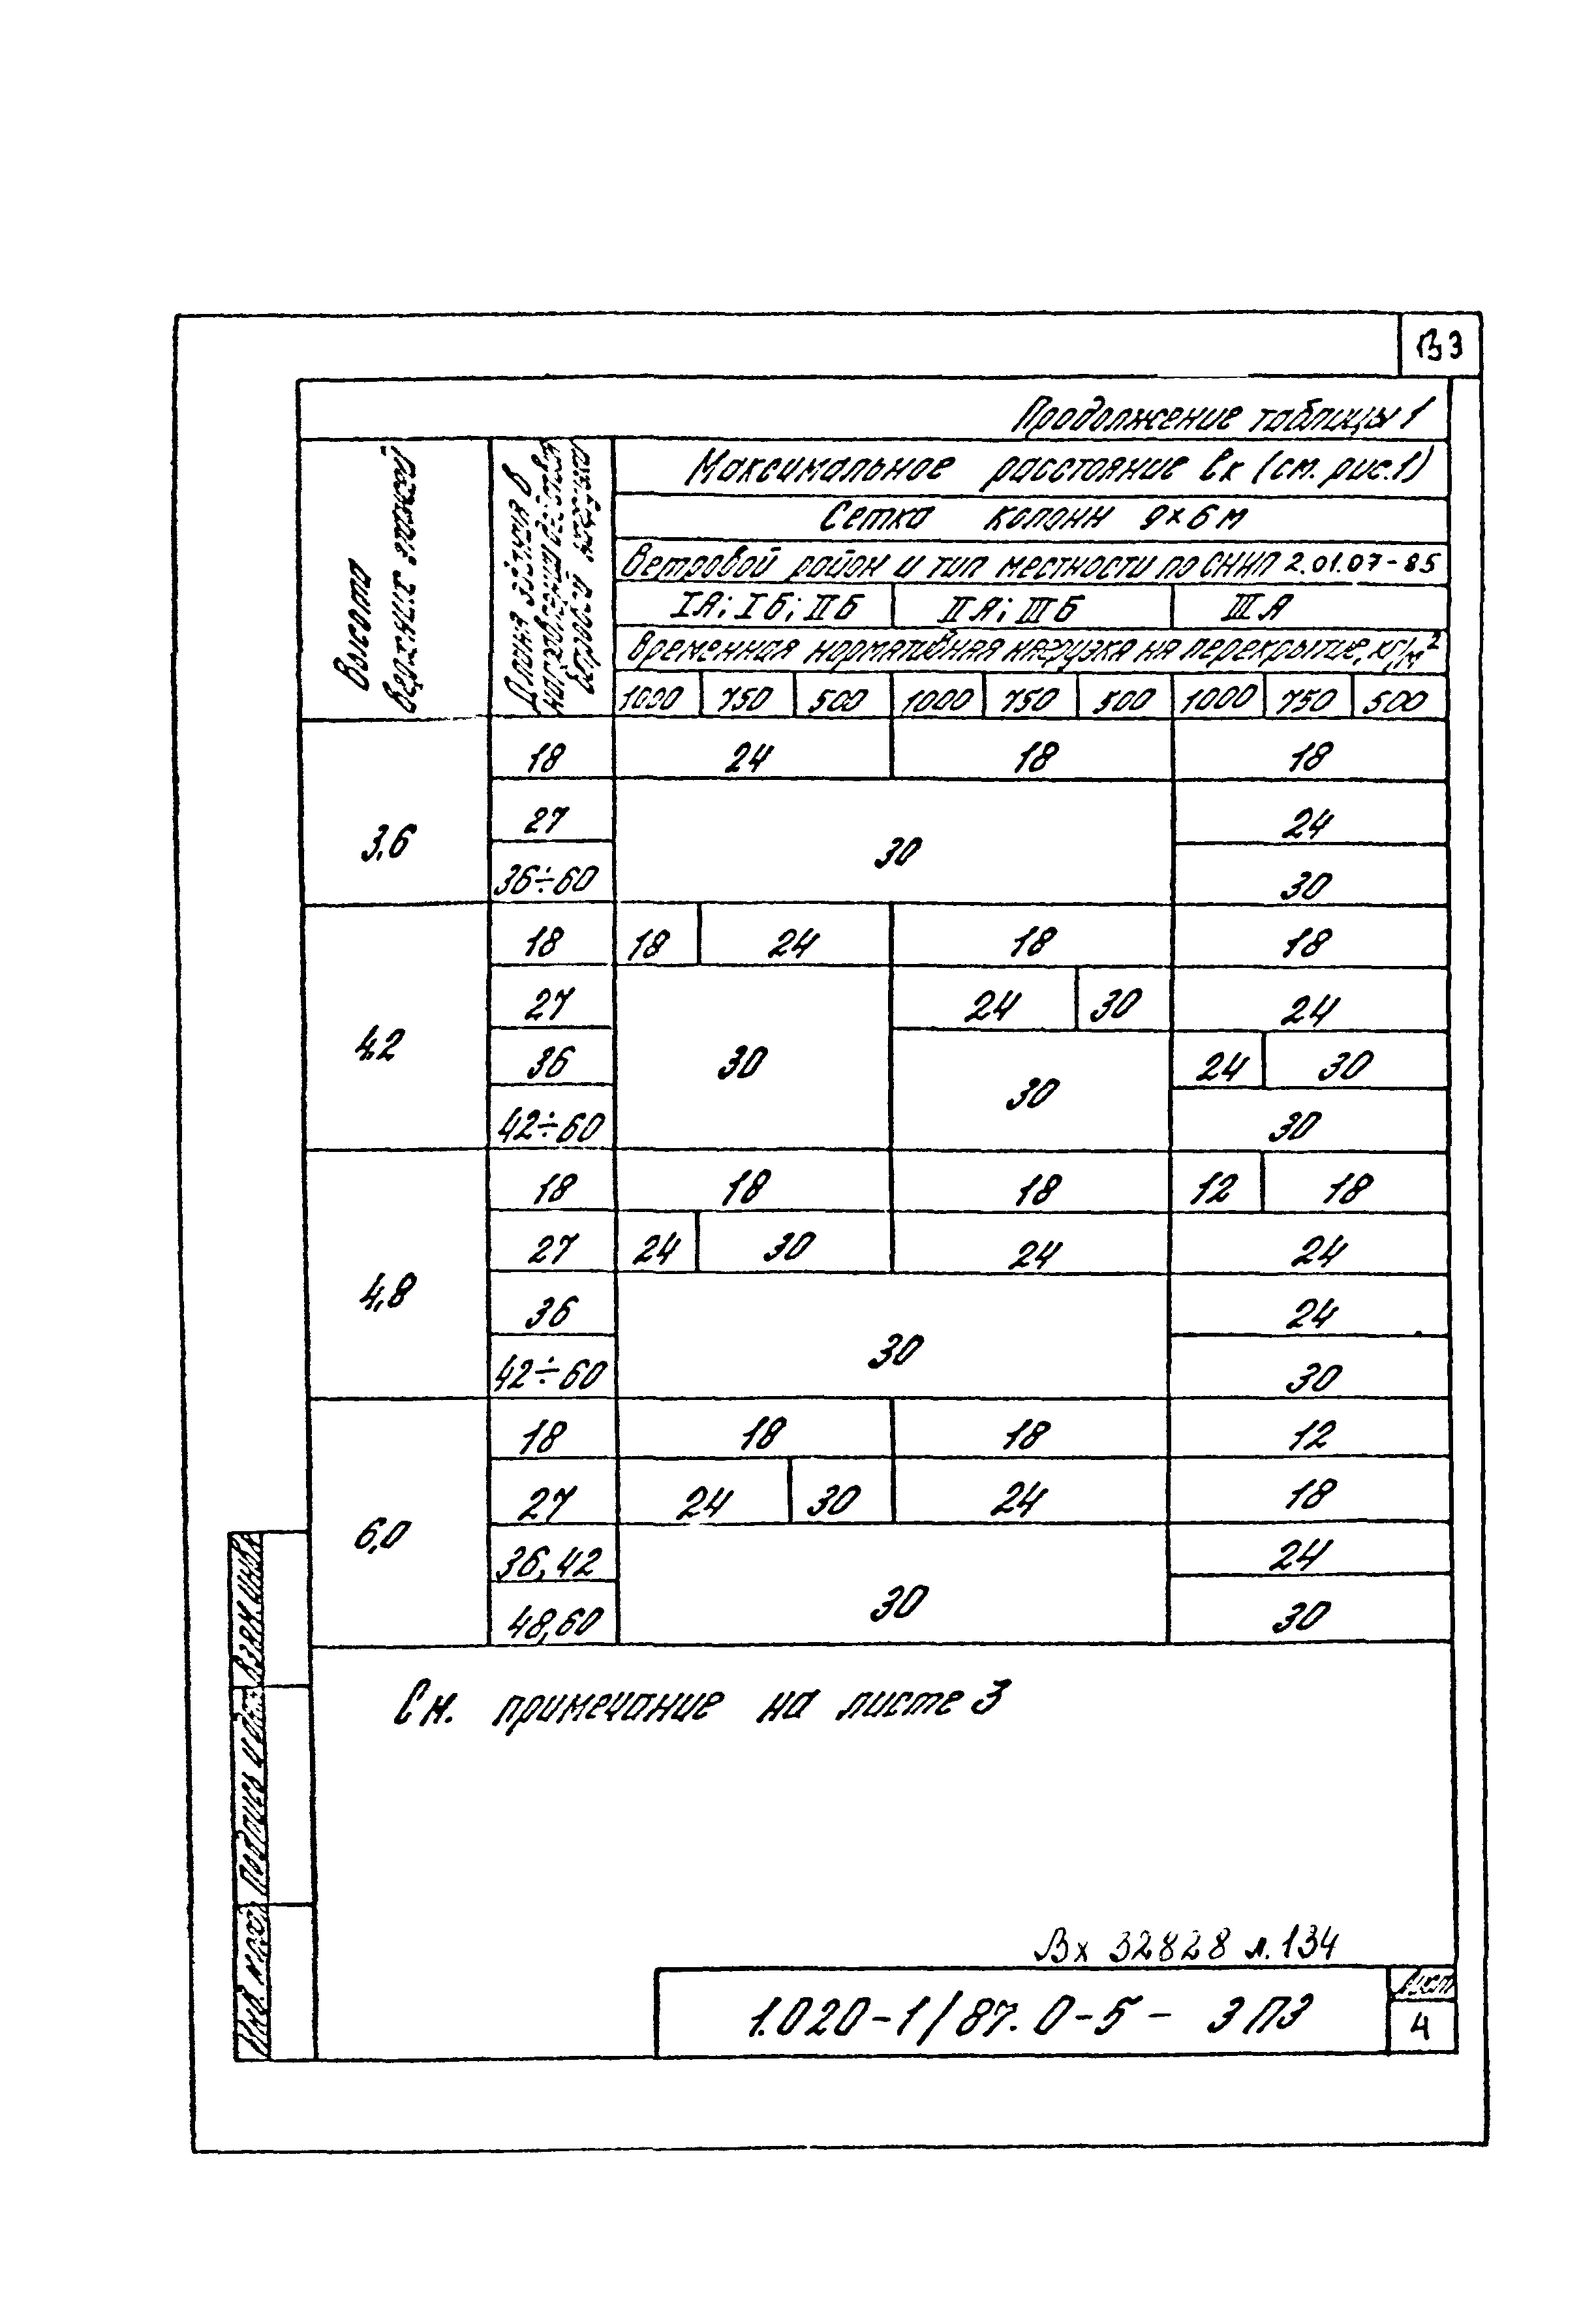 В3
Продолжение таблицы 1
Высота верхних этажей
Длина здания в направлении действия ветровой нагрузки
Максимальное расстояние ℓк (см. рис.1)
Сетка колонн 9×6 м
Ветровой район и тип местности по СНиП 2.01.07-85
IА; IБ; IIБ IIА; IIIБ IIIА
Временная нормативная нагрузка на перекрытие, кг/м²
1000 750 500 1000 750 500 1000 750 500
3,6
18 24 18 18
27 30 24
36÷60 30
4,2
18 18 24 18 18
27 30 24 30 24
36 30 24 30
42÷60 30
4,8
18 18 18 12 18
27 24 30 24 24
36 30 24
42÷60 30
6,0
18 18 18 12
27 24 30 24 18
36,42 30 24
48,60 30
См. примечание на листе 3
Взам. инв.
Подпись и дата
Инв. № под
Вх 32828 л.134
1.020-1/87. 0-5- 3ПЗ
Лист
4